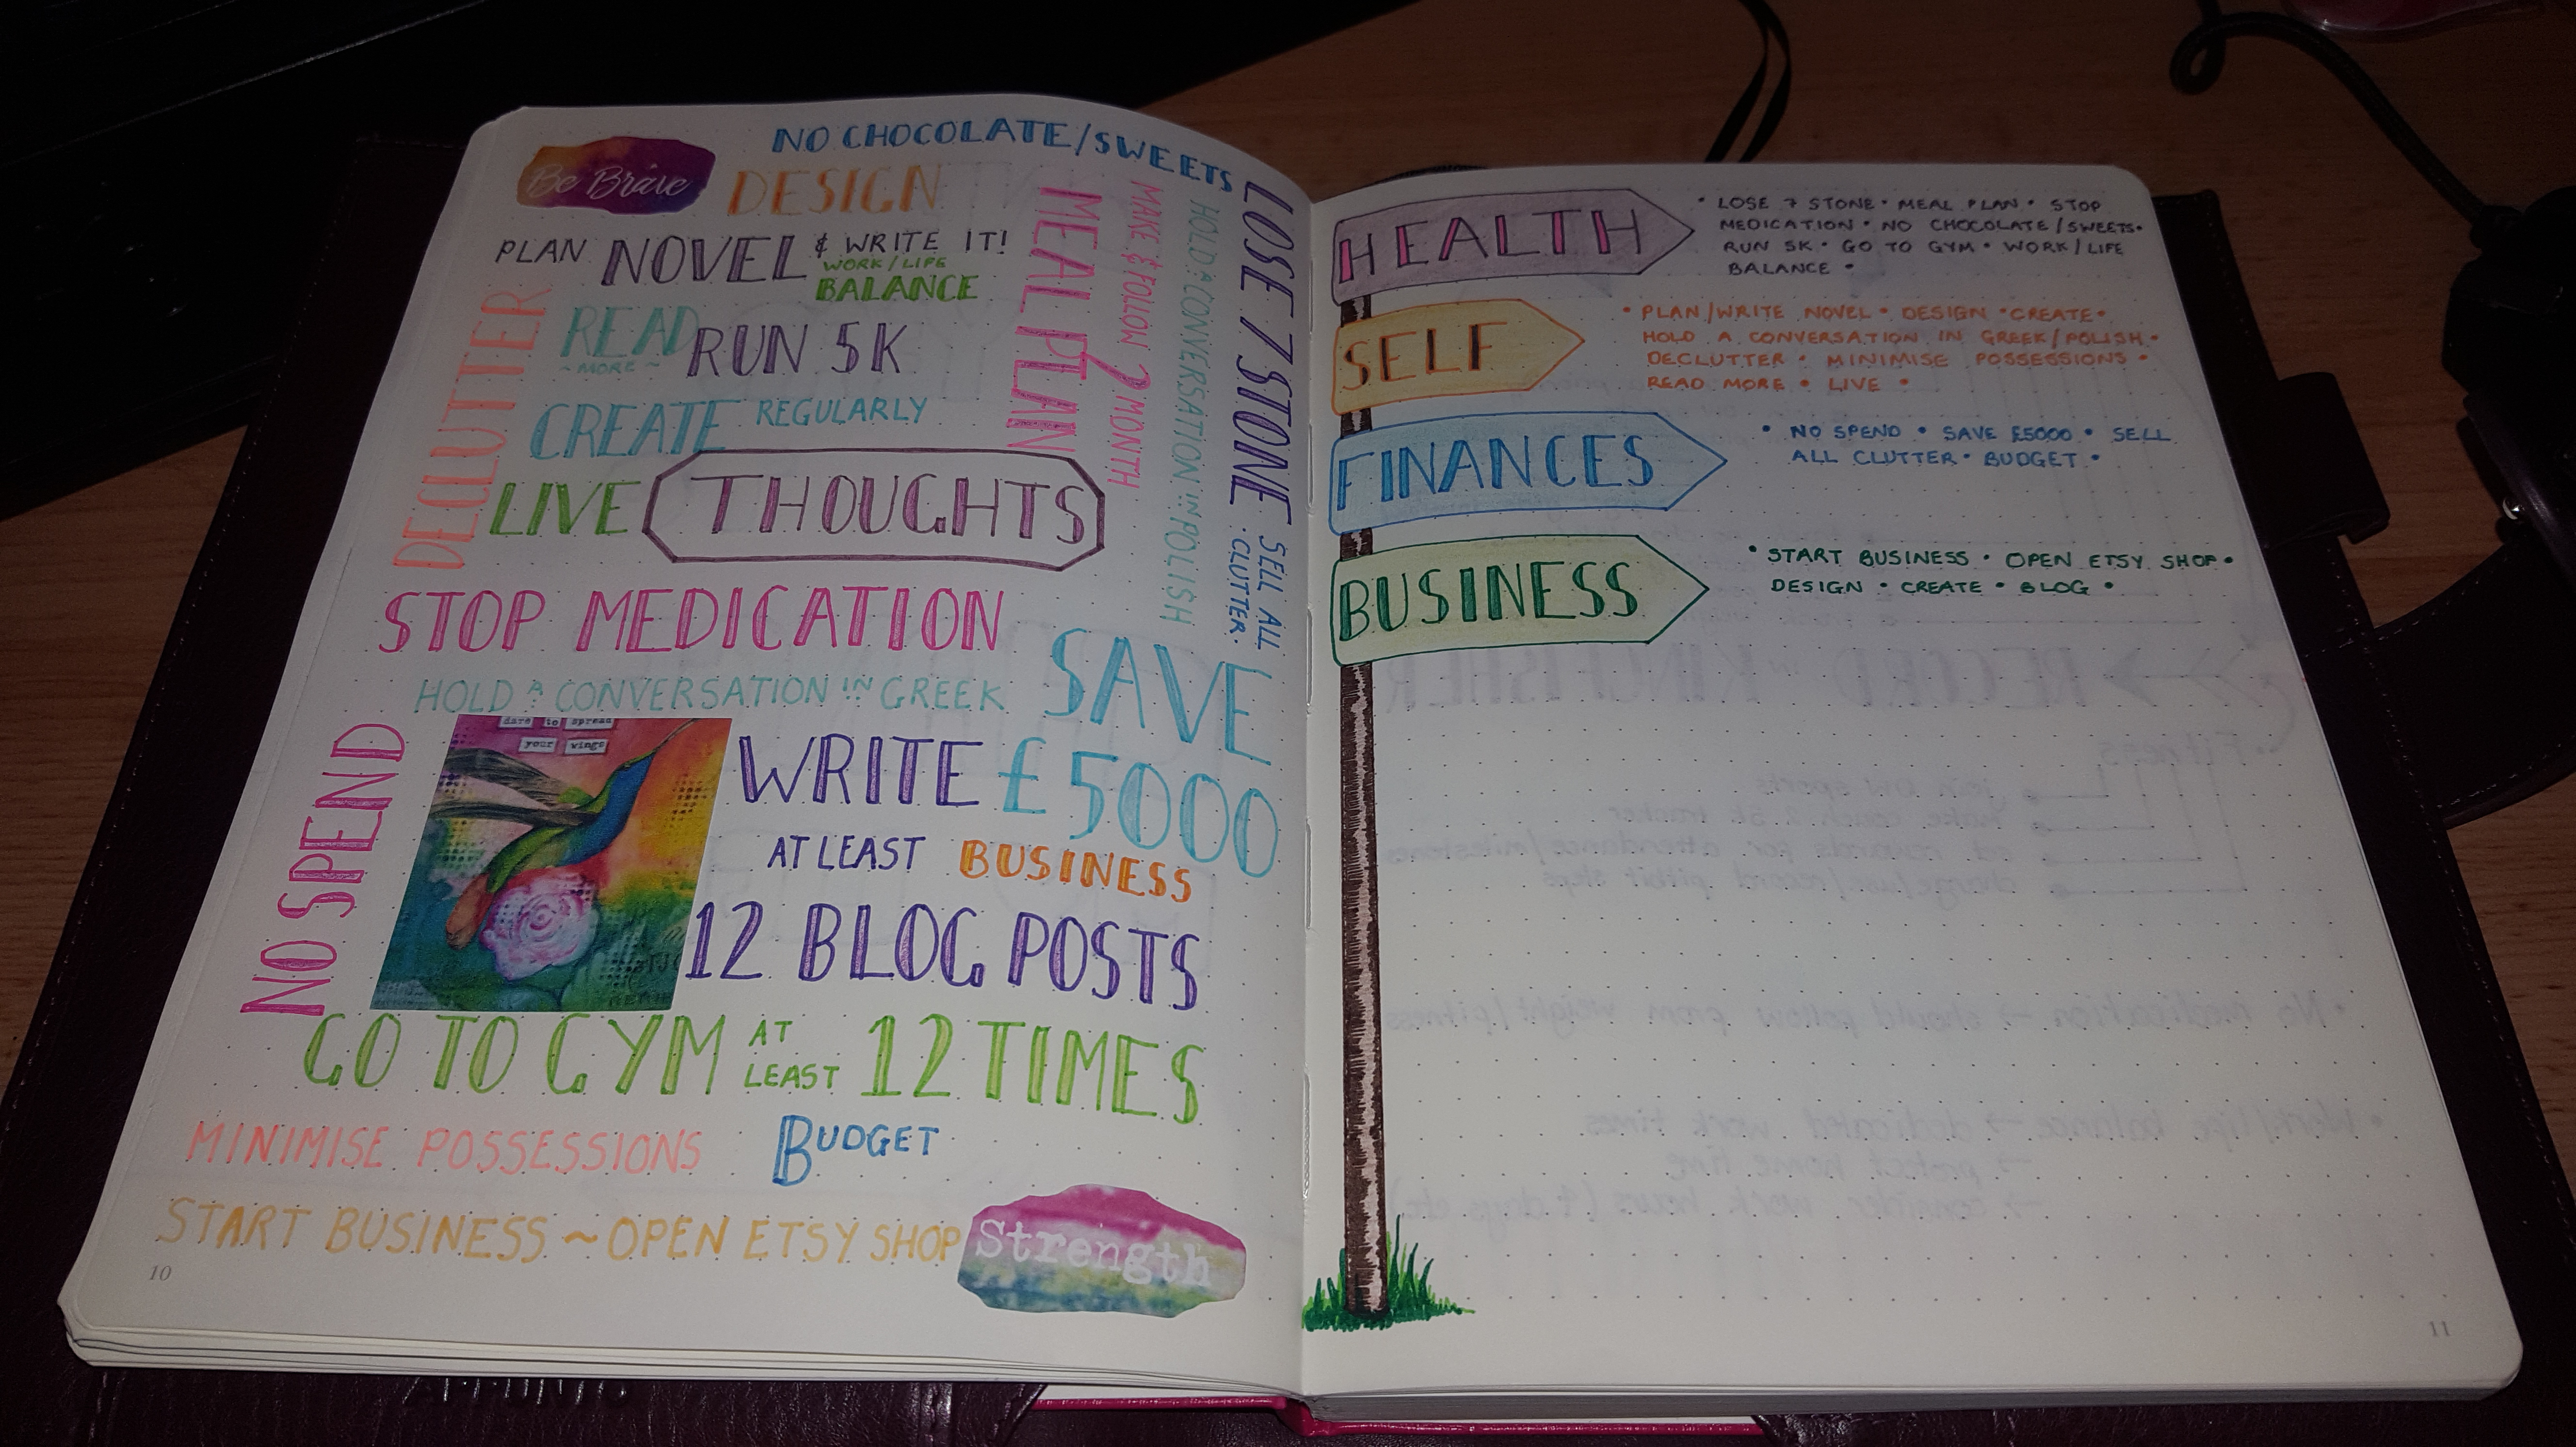 NO CHOCOLATE/SWEETS
Be Brave
DESIGN
PLAN NOVEL & WRITE IT!
WORK/LIFE
BALANCE
DECLUTTER
READ
~MORE~
RUN 5K
CREATE REGULARLY
LIVE
THOUGHTS
MEAL PLAN
MAKE & FOLLOW 2 MONTH
HOLD A CONVERSATION IN POLISH
LOSE 7 STONE
SELL ALL
·CLUTTER·
STOP MEDICATION
HOLD A CONVERSATION IN GREEK
SAVE
£5000
NO SPEND
dare to spread
your wings
WRITE
AT LEAST
BUSINESS
12 BLOG POSTS
GO TO GYM AT LEAST 12 TIMES
MINIMISE POSSESSIONS
BUDGET
START BUSINESS ~ OPEN ETSY SHOP
Strength
10
HEALTH
• LOSE 7 STONE • MEAL PLAN • STOP
MEDICATION • NO CHOCOLATE/SWEETS •
RUN 5K • GO TO GYM • WORK/LIFE
BALANCE •
SELF
• PLAN/WRITE NOVEL • DESIGN • CREATE •
HOLD A CONVERSATION IN GREEK/POLISH •
DECLUTTER • MINIMISE POSSESSIONS •
READ MORE • LIVE •
FINANCES
• NO SPEND • SAVE £5000 • SELL
ALL CLUTTER • BUDGET •
BUSINESS
• START BUSINESS • OPEN ETSY SHOP •
DESIGN • CREATE • BLOG •
11